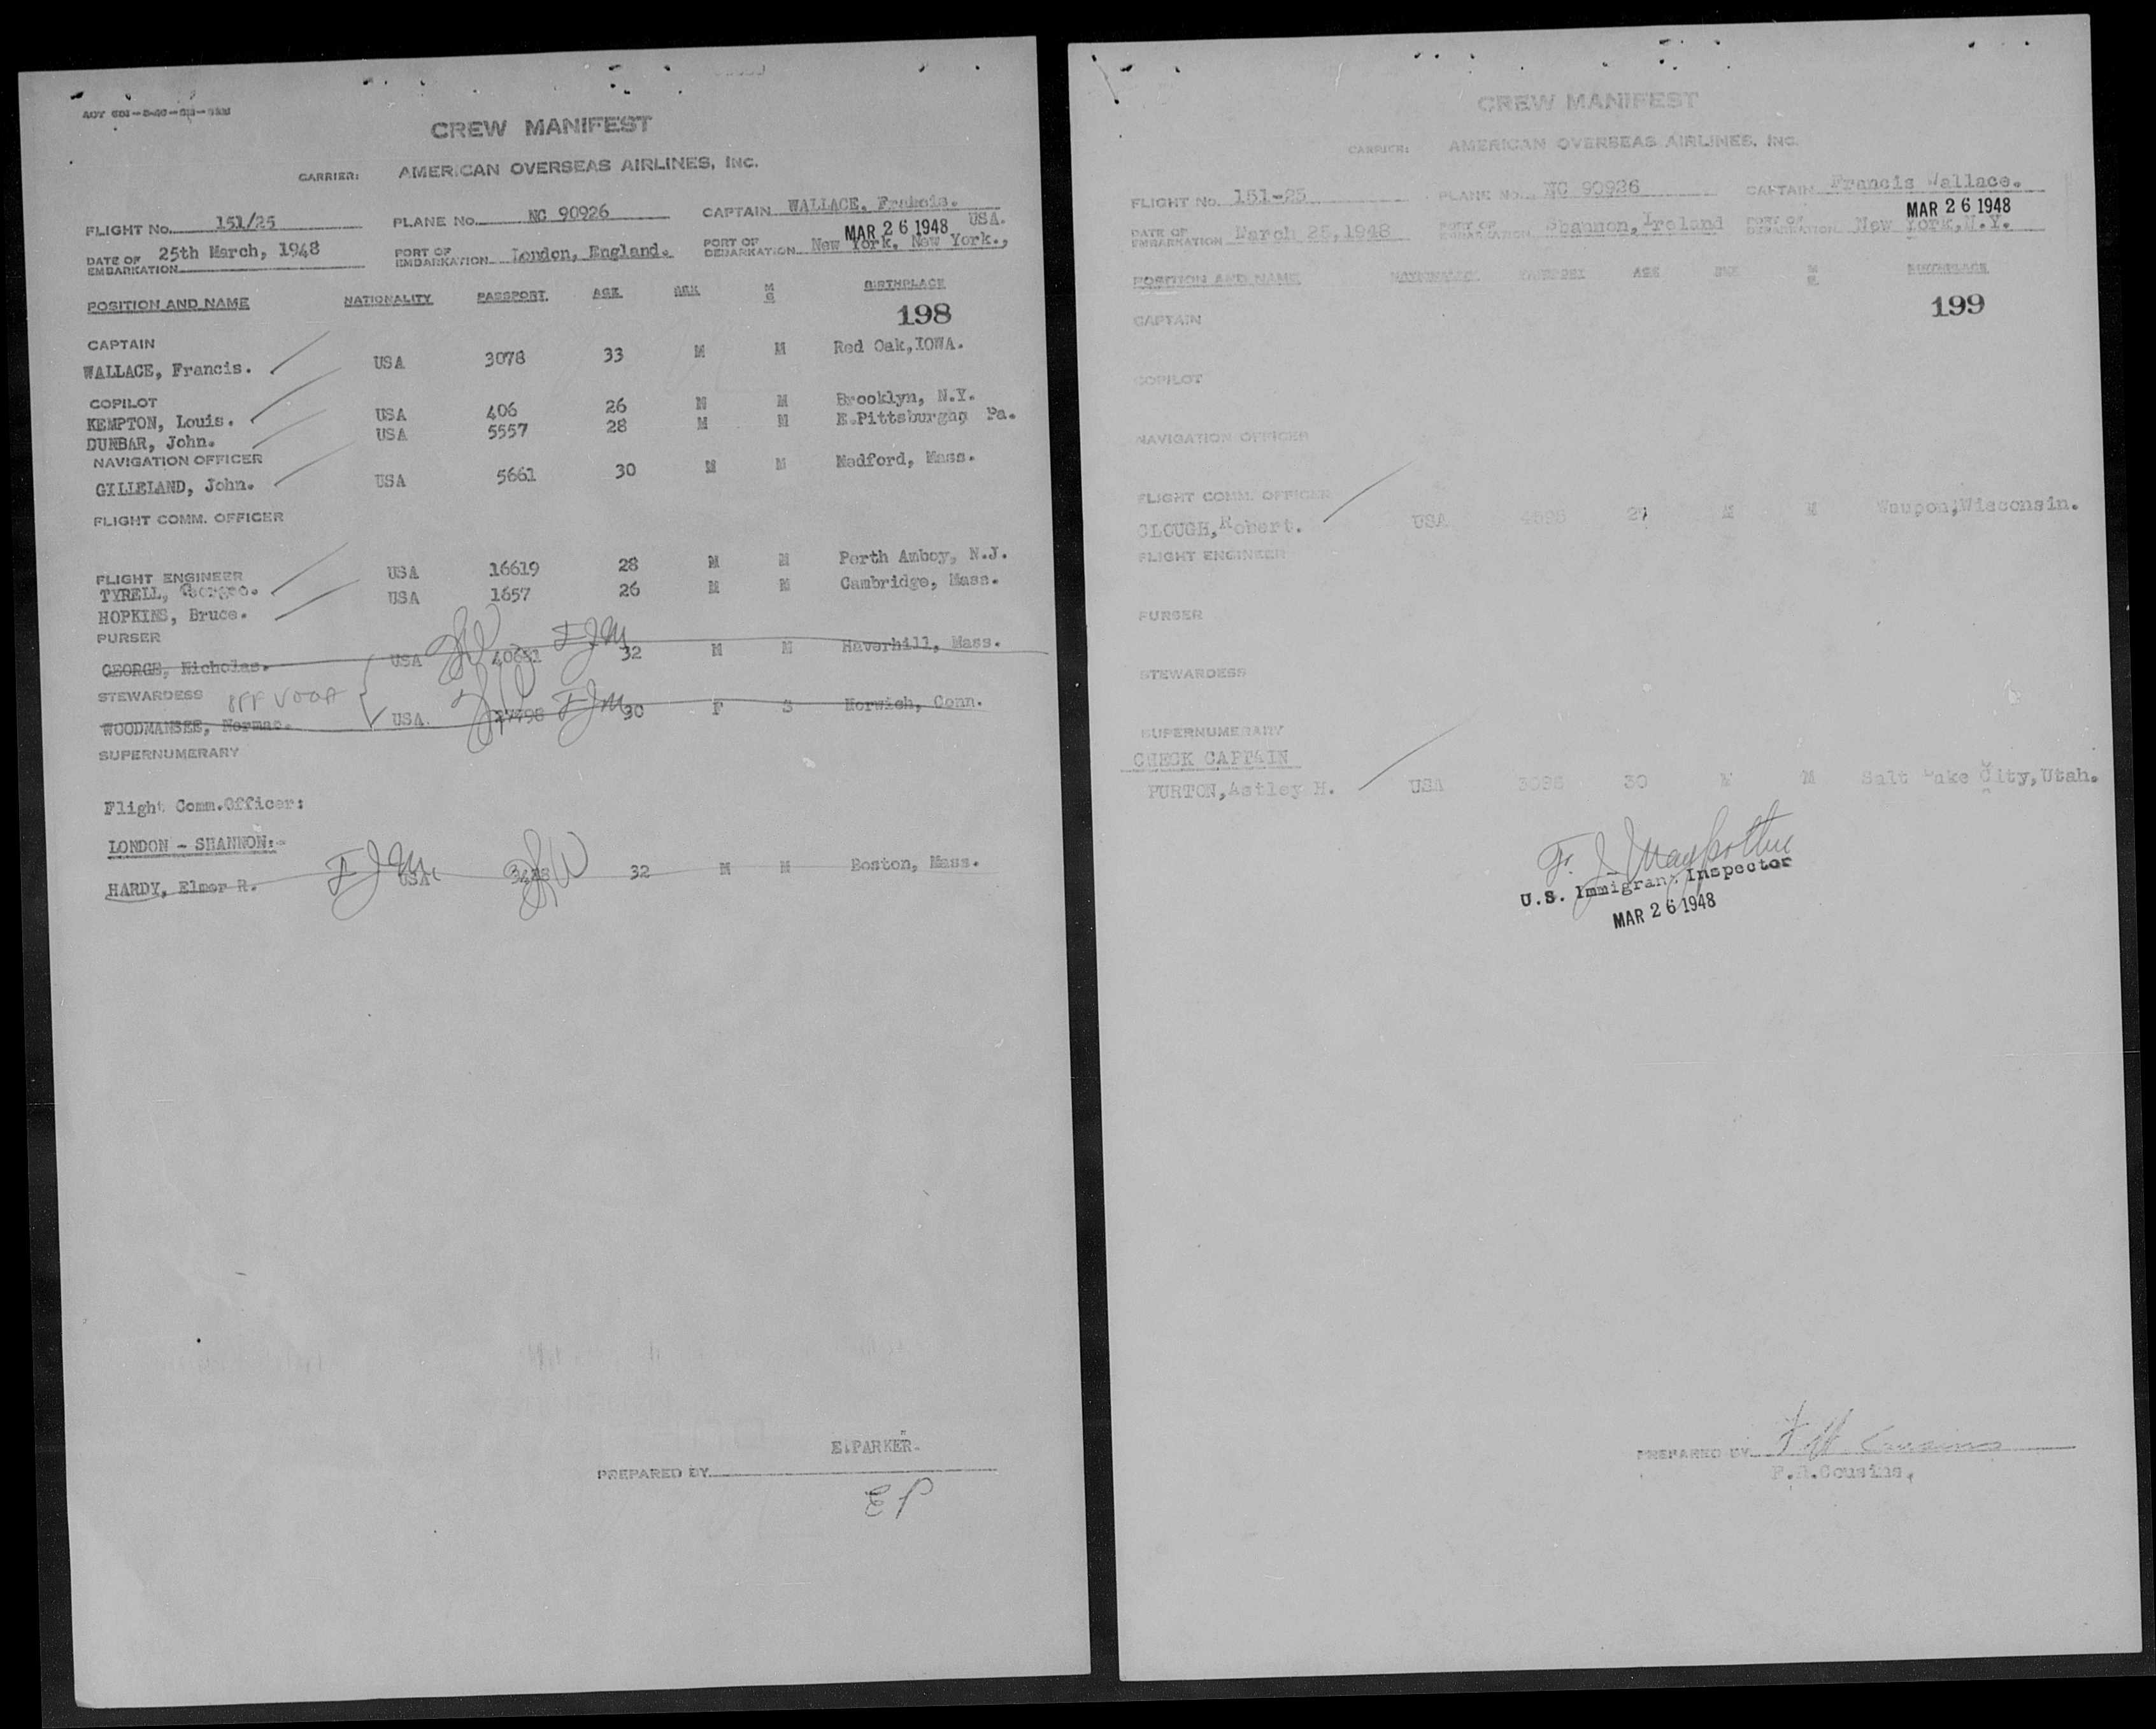 CREW MANIFEST
CARRIER: AMERICAN OVERSEAS AIRLINES, INC.
FLIGHT No. 151/25 PLANE No. NC 90926 CAPTAIN WALLACE, Francis.
MAR 26 1948 USA.
DATE OF EMBARKATION 25th March, 1948 PORT OF EMBARKATION London, England. PORT OF DEBARKATION New York, New York.,
POSITION AND NAME NATIONALITY PASSPORT AGE SEX M S BIRTHPLACE
198
CAPTAIN
WALLACE, Francis. USA 3078 33 M M Red Oak, IOWA.
COPILOT
KEMPTON, Louis. USA 406 26 M M Brooklyn, N.Y.
DUNBAR, John. USA 5557 28 M M E.Pittsburgh, Pa.
NAVIGATION OFFICER
GILLELAND, John. USA 5661 30 M M Medford, Mass.
FLIGHT COMM. OFFICER
FLIGHT ENGINEER
TYRELL, George. USA 16619 28 M M Perth Amboy, N.J.
HOPKINS, Bruce. USA 1657 26 M M Cambridge, Mass.
PURSER
GEORGE, Nicholas. USA FJM 32 M M Haverhill, Mass.
STEWARDESS
WOODMANSEE, Norma. USA. FJM 30 F S Norwich, Conn.
SUPERNUMERARY
Flight Comm.Officer:
LONDON - SHANNON:-
HARDY, Elmer R. FJM USA 32 M M Boston, Mass.
E.PARKER.
PREPARED BY
EP
CREW MANIFEST
CARRIER: AMERICAN OVERSEAS AIRLINES, INC.
FLIGHT No. 151-25 PLANE No. NC 90926 CAPTAIN Francis Wallace.
MAR 26 1948
DATE OF EMBARKATION March 25, 1948 PORT OF EMBARKATION Shannon, Ireland PORT OF DEBARKATION New York, N.Y.
POSITION AND NAME NATIONALITY PASSPORT AGE SEX M S BIRTHPLACE
199
CAPTAIN
COPILOT
NAVIGATION OFFICER
FLIGHT COMM. OFFICER
CLOUGH, Robert. USA 27 M M Waupon, Wisconsin.
FLIGHT ENGINEER
PURSER
STEWARDESS
SUPERNUMERARY
CHECK CAPTAIN
PURTON, Astley H. USA 30 M M Salt Lake City, Utah.
F. J.
U.S. Immigrant Inspector
MAR 26 1948
PREPARED BY Cousins
Cousins.